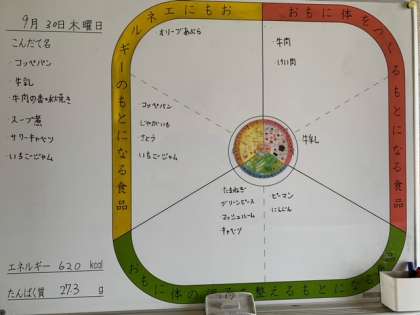 9月30日木曜日
こんだて名
・コッペパン
・牛乳
・牛肉の香味焼き
・スープ煮
・サワーキャベツ
・いちごジャム
エネルギー 620 kcal
たんぱく質 27.3 g
おもにエネルギーのもとになる食品
・オリーブあぶら
・コッペパン
・じゃがいも
・さとう
・いちごジャム
おもに体をつくるもとになる食品
・牛肉
・けい肉
・牛乳
・たまねぎ
・グリーンピース
・マッシュルーム
・キャベツ
・ピーマン
・にんじん
おもに体の
整えるもとになる